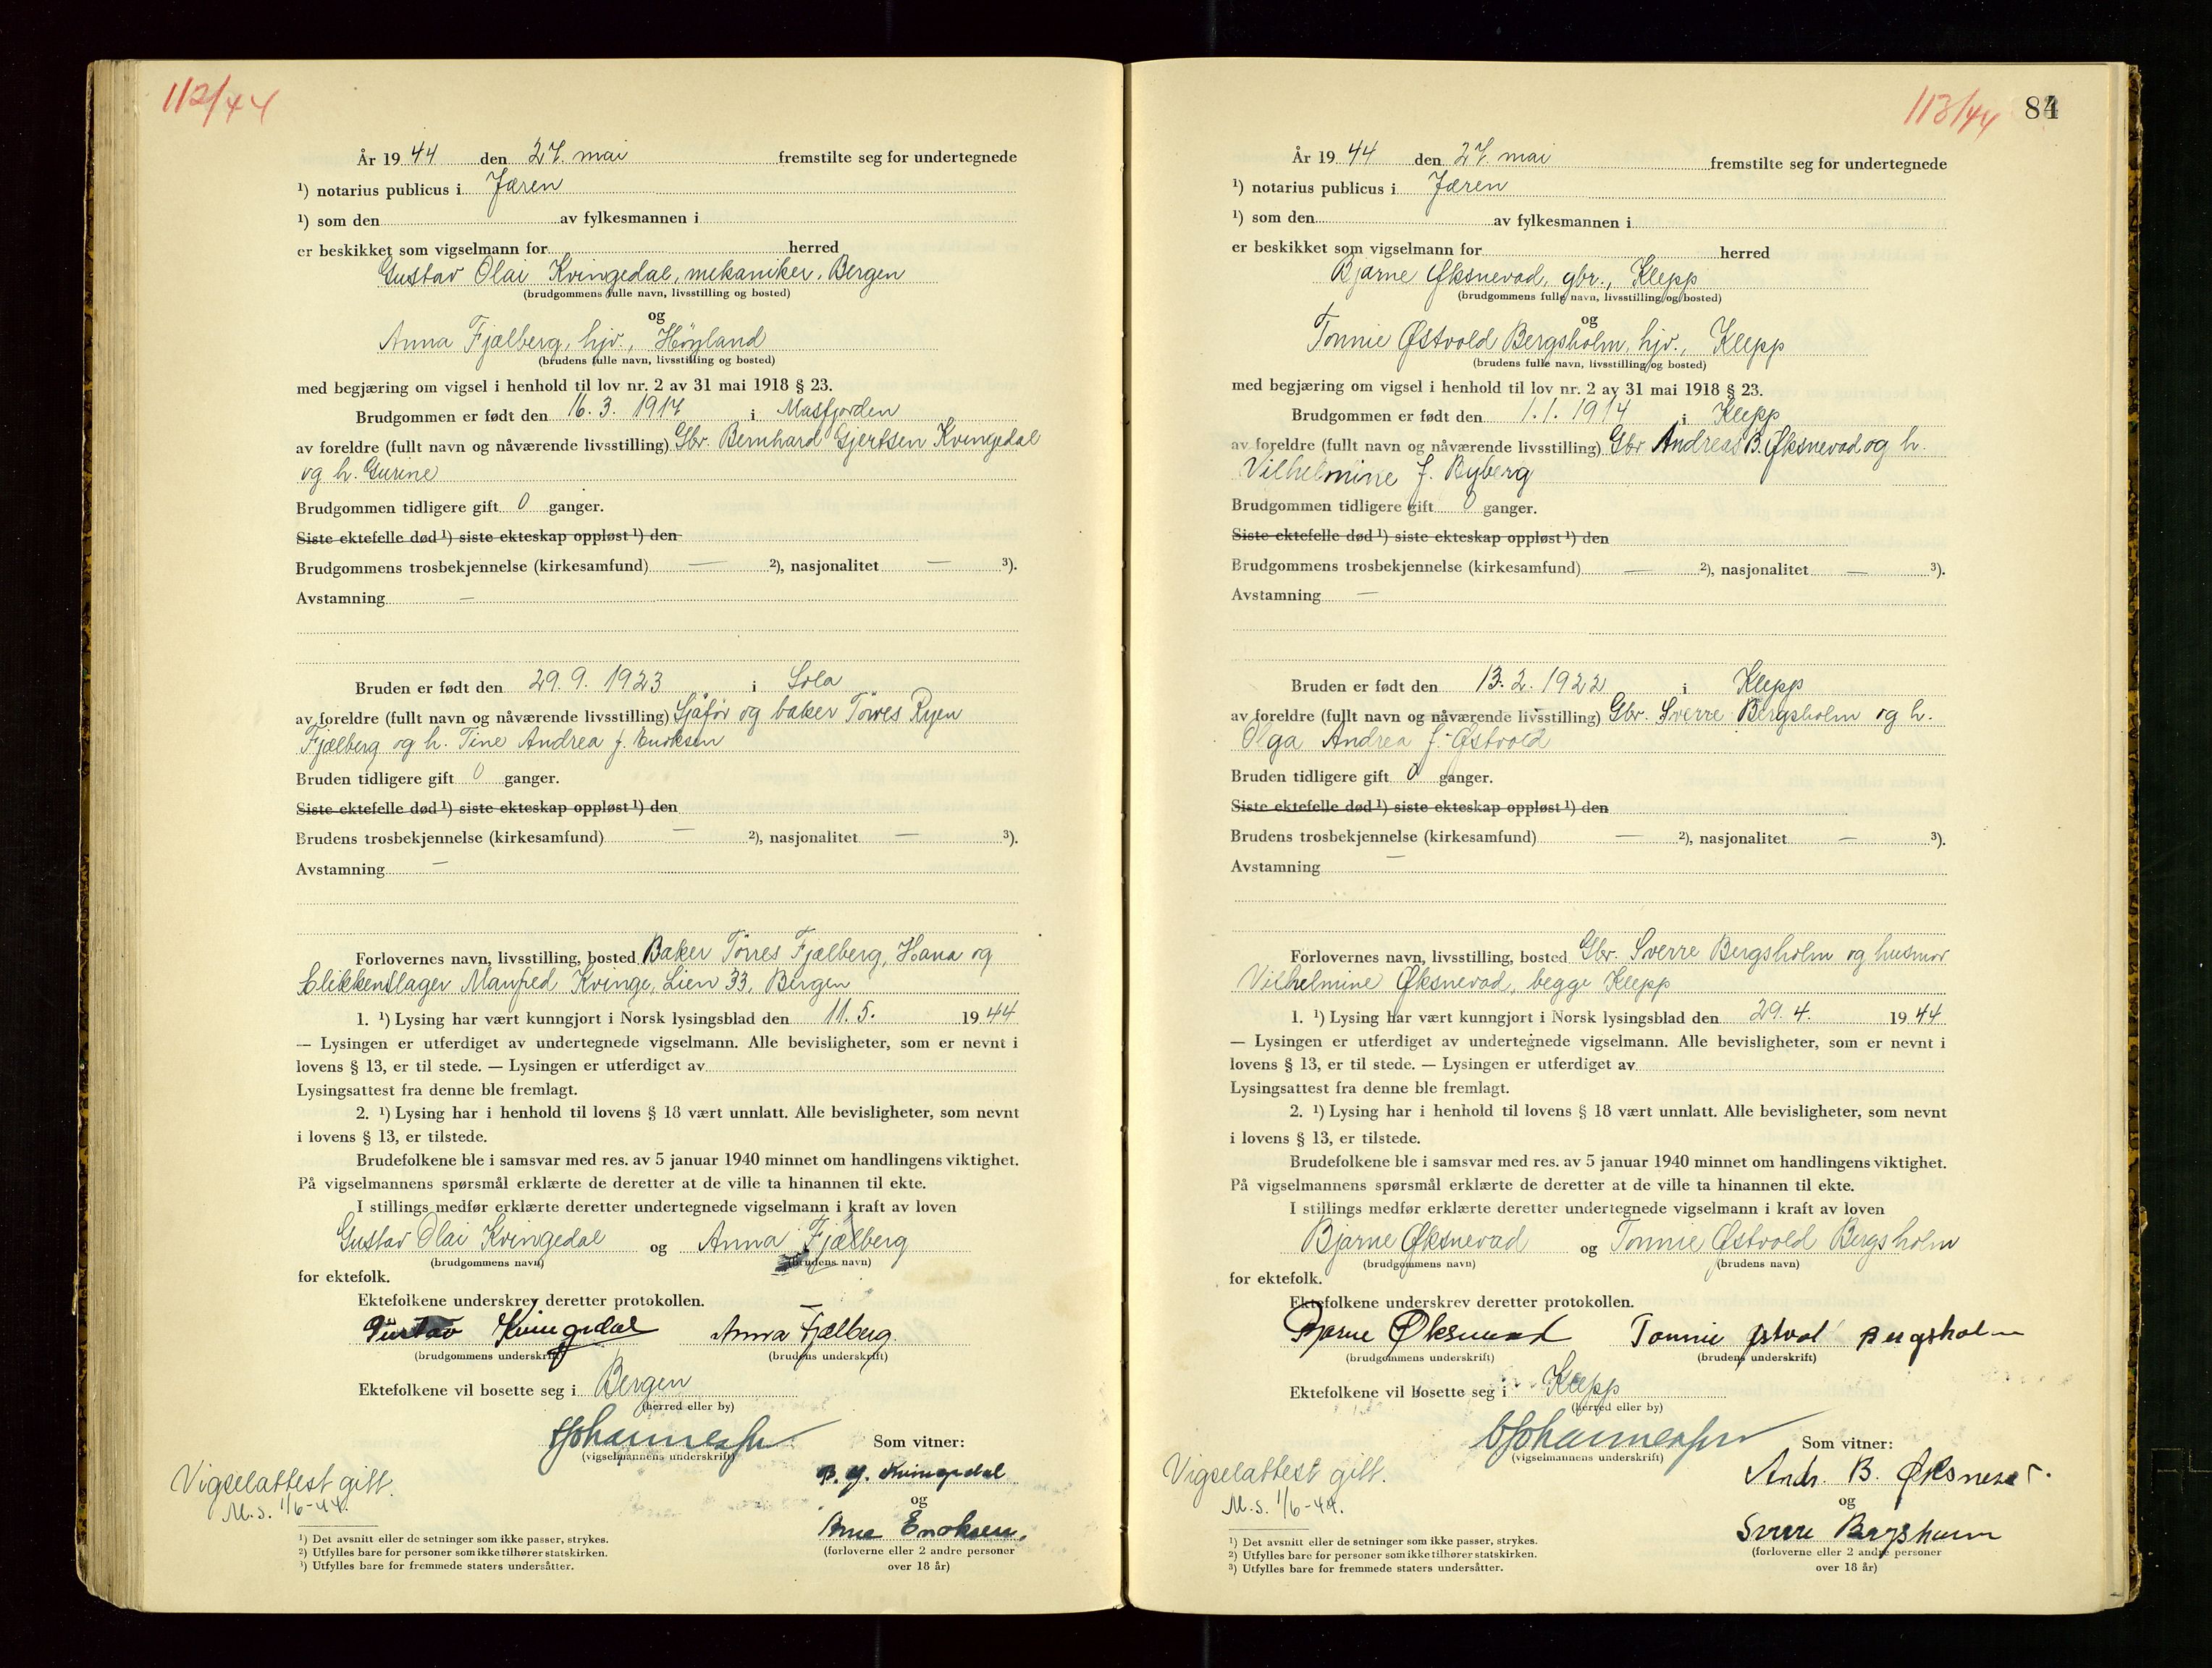 112/44
År 1944 den 27. mai fremstilte seg for undertegnede
¹) notarius publicus i Jæren
¹) som den av fylkesmannen i
er beskikket som vigselmann for herred
Gustav Olai Kvingedal, mekaniker, Bergen
(brudgommens fulle navn, livsstilling og bosted)
og
Anna Fjælberg, hjv., Høyland
(brudens fulle navn, livsstilling og bosted)
med begjæring om vigsel i henhold til lov nr. 2 av 31 mai 1918 § 23.
Brudgommen er født den 16. 3. 1917 i Masfjorden
av foreldre (fullt navn og nåværende livsstilling) Gbr. Bernhard Gjertsen Kvingedal
og h. Gurine
Brudgommen tidligere gift 0 ganger.
Siste ektefelle død ¹) siste ekteskap oppløst ¹) den
Brudgommens trosbekjennelse (kirkesamfund) — ²), nasjonalitet — ³).
Avstamning —
Bruden er født den 29. 9. 1923 i Sola
av foreldre (fullt navn og nåværende livsstilling) Sjåfør og baker Tørres Ryen
Fjælberg og h. Tine Andrea f. Enoksen
Bruden tidligere gift 0 ganger.
Siste ektefelle død ¹) siste ekteskap oppløst ¹) den
Brudens trosbekjennelse (kirkesamfund) — ²), nasjonalitet — ³).
Avstamning —
Forlovernes navn, livsstilling, bosted Baker Tørres Fjælberg, Hana og
blikkenslager Manfred Kvinge, Lien 33, Bergen
1. ¹) Lysing har vært kunngjort i Norsk lysingsblad den 11. 5. 1944
— Lysingen er utferdiget av undertegnede vigselmann. Alle bevisligheter, som er nevnt i
lovens § 13, er til stede. — Lysingen er utferdiget av
Lysingsattest fra denne ble fremlagt.
2. ¹) Lysing har i henhold til lovens § 18 vært unnlatt. Alle bevisligheter, som nevnt
i lovens § 13, er tilstede.
Brudefolkene ble i samsvar med res. av 5 januar 1940 minnet om handlingens viktighet.
På vigselmannens spørsmål erklærte de deretter at de ville ta hinannen til ekte.
I stillings medfør erklærte deretter undertegnede vigselmann i kraft av loven
Gustav Olai Kvingedal og Anna Fjælberg
(brudgommens navn) (brudens navn)
for ektefolk.
Ektefolkene underskrev deretter protokollen.
Gustav Kvingedal Anna Fjælberg.
(brudgommens underskrift) (brudens underskrift)
Ektefolkene vil bosette seg i Bergen
(herred eller by)
Som vitner:
(vigselmannens underskrift)
B. G. Kvingedal
Vigselattest gitt.
M.S. 1/6-44.
og
Arne Enoksen.
(forloverne eller 2 andre personer
over 18 år)
¹) Det avsnitt eller de setninger som ikke passer, strykes.
²) Utfylles bare for personer som ikke tilhører statskirken.
³) Utfylles bare for fremmede staters undersåtter.
113/44 84
År 1944 den 27. mai fremstilte seg for undertegnede
¹) notarius publicus i Jæren
¹) som den av fylkesmannen i
er beskikket som vigselmann for herred
Bjarne Øksnevad, gbr., Klepp
(brudgommens fulle navn, livsstilling og bosted)
og
Tonnie Østvold Bergsholm, hjv., Klepp
(brudens fulle navn, livsstilling og bosted)
med begjæring om vigsel i henhold til lov nr. 2 av 31 mai 1918 § 23.
Brudgommen er født den 1. 1. 1914 i Klepp
av foreldre (fullt navn og nåværende livsstilling) Gbr Andreas B. Øksnevad og h.
Vilhelmine f. Byberg
Brudgommen tidligere gift 0 ganger.
Siste ektefelle død ¹) siste ekteskap oppløst ¹) den
Brudgommens trosbekjennelse (kirkesamfund) — ²), nasjonalitet — ³).
Avstamning —
Bruden er født den 13. 2. 1922 i Klepp
av foreldre (fullt navn og nåværende livsstilling) Gbr. Sverre Bergsholm og h.
Olga Andrea f. Østvold
Bruden tidligere gift 0 ganger.
Siste ektefelle død ¹) siste ekteskap oppløst ¹) den
Brudens trosbekjennelse (kirkesamfund) — ²), nasjonalitet — ³).
Avstamning —
Forlovernes navn, livsstilling, bosted Gbr. Sverre Bergsholm og husmor
Vilhelmine Øksnevad, begge Klepp
1. ¹) Lysing har vært kunngjort i Norsk lysingsblad den 29. 4. 1944
— Lysingen er utferdiget av undertegnede vigselmann. Alle bevisligheter, som er nevnt i
lovens § 13, er til stede. — Lysingen er utferdiget av
Lysingsattest fra denne ble fremlagt.
2. ¹) Lysing har i henhold til lovens § 18 vært unnlatt. Alle bevisligheter, som nevnt
i lovens § 13, er tilstede.
Brudefolkene ble i samsvar med res. av 5 januar 1940 minnet om handlingens viktighet.
På vigselmannens spørsmål erklærte de deretter at de ville ta hinannen til ekte.
I stillings medfør erklærte deretter undertegnede vigselmann i kraft av loven
Bjarne Øksnevad og Tonnie Østvold Bergsholm
(brudgommens navn) (brudens navn)
for ektefolk.
Ektefolkene underskrev deretter protokollen.
Bjarne Øksnevad Tonnie Østvol Bergsholm
(brudgommens underskrift) (brudens underskrift)
Ektefolkene vil bosette seg i Klepp
(herred eller by)
Som vitner:
(vigselmannens underskrift)
Andr. B. Øksnevad.
Vigselattest gitt.
M.S. 1/6-44.
og
Sverre Bergsholm
(forloverne eller 2 andre personer
over 18 år)
¹) Det avsnitt eller de setninger som ikke passer, strykes.
²) Utfylles bare for personer som ikke tilhører statskirken.
³) Utfylles bare for fremmede staters undersåtter.